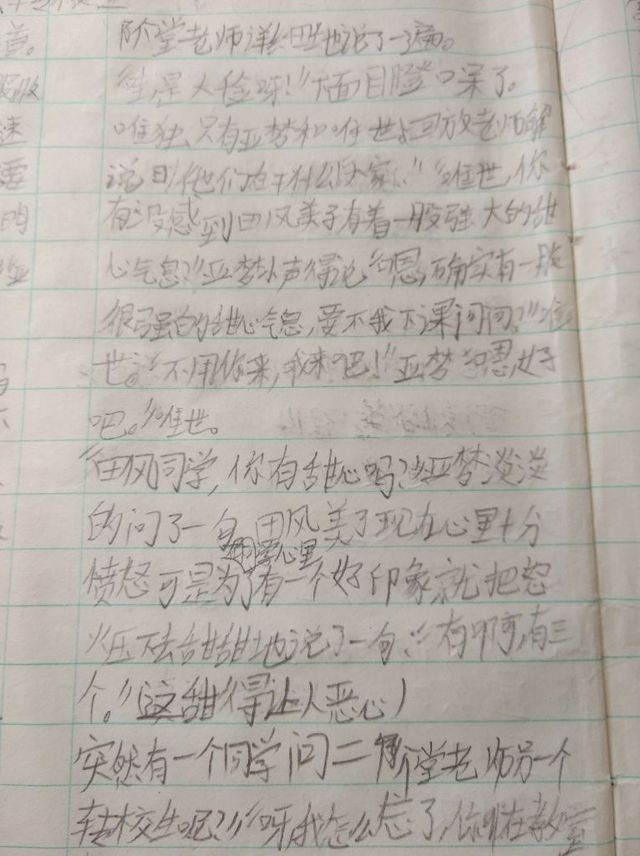 阶堂老师详细地说了一遍。
"哇,是人伦呀!"大面目瞪口呆了。
唯独只有亚梦和唯世
说:"他们在干什么 "唯世,你
有没感到田风美子有着一股强大的甜
心气息?"亚梦小声得说"恩,确实有一股
很强的甜心气息,要不我下课问问?"唯
世。"不用你来,我来吧!"亚梦"恩,好
吧。"唯世。
"田风同学,你有甜心吗?"亚梦淡淡
的问了一句,田风美子现在心里十分
同学心里
愤怒可是为了有一个好印象就把怒
火压下去甜甜地说了一句:"有啊,有三
个。"(这甜得让人恶心)
突然有一个同学问二阶堂老师另一个
转校生呢?""呀,我怎么忘了,你们在教室